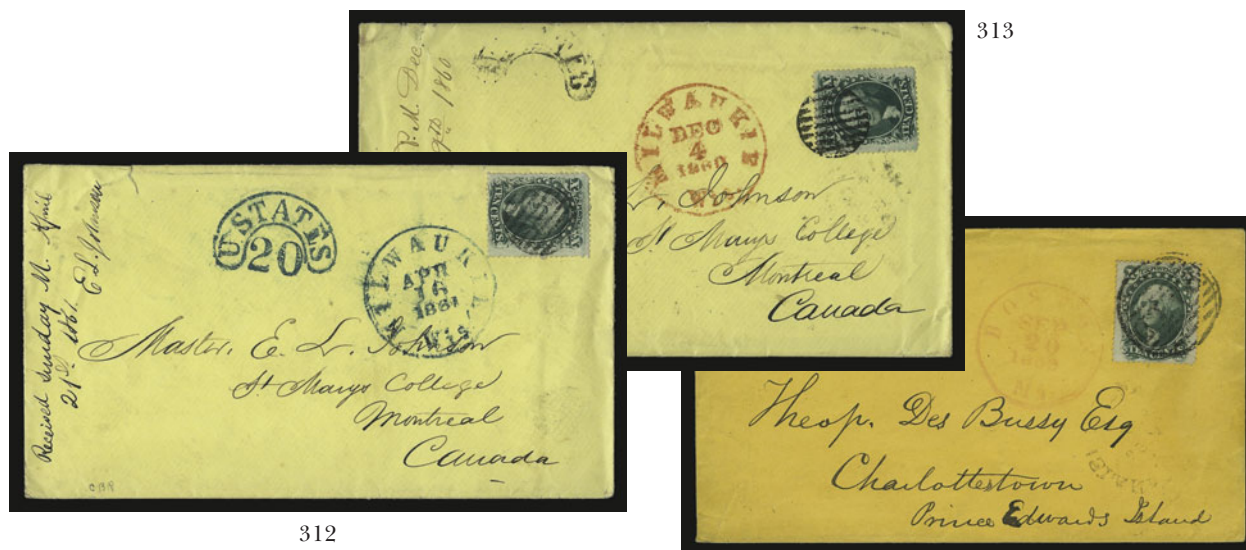 313
P. M. Dec.
9th 1860
MILWAUKIE
DEC
4
1860
TEN CENTS
E. L. Johnson
St Marys College
Montreal
Canada
Received Sunday M. April
21st 1861. E L Johnson
U STATES
20
MILWAUKIE
APR
16
1861
Wis
Master. E. L. Johnson
St Marys College
Montreal
Canada
CBR
312
BOSTON
SEP
20
Theop. Des Bussy Esq
Charlottestown
Prince Edwards Island